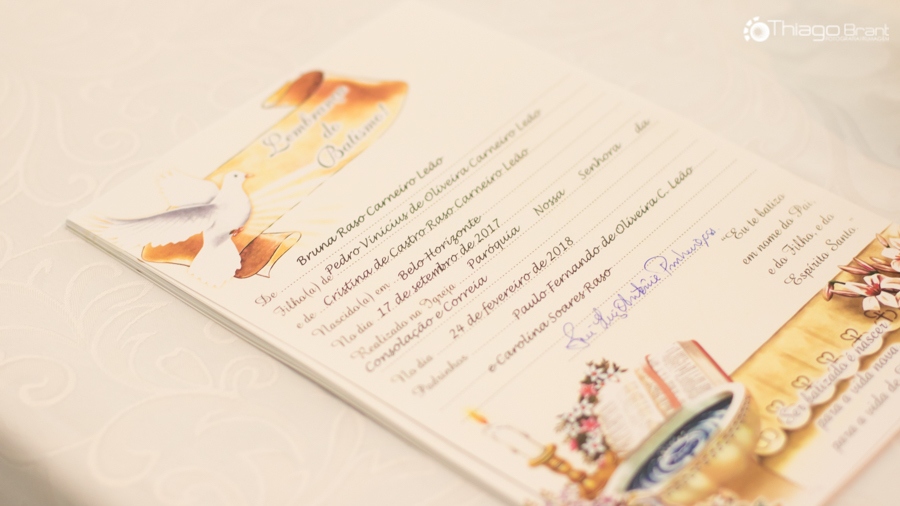 Thiago Brant
Lembrança
de
Batismo!
De Bruna Raso Carneiro Leão
Filho(a) de Pedro Vinicius de Oliveira Carneiro Leão
e de Cristina de Castro Raso Carneiro Leão
Nascido(a) em Belo Horizonte
No dia 17 de setembro de 2017
Realizado na Igreja Paróquia Nossa Senhora da
Consolação e Correia
No dia 24 de fevereiro de 2018
Padrinhos Paulo Fernando de Oliveira C. Leão
e Carolina Soares Raso
"Eu te batizo
em nome do Pai
e do Filho, e do
Espírito Santo"
Ser batizado é nascer
para a vida nova
para a vida de